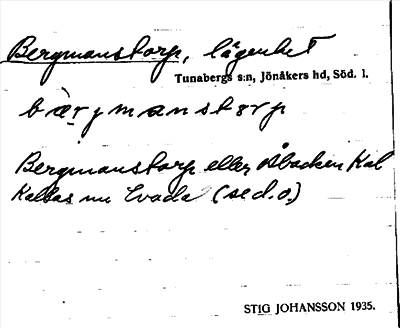 Bergmanstorp, lägenhet
Tunabergs s:n, Jönåkers hd, Söd. l.
bærjmanstorp
Bergmanstorp eller Åbacken Kal
Kallas nu Evada (se d.o.)
STIG JOHANSSON 1935.